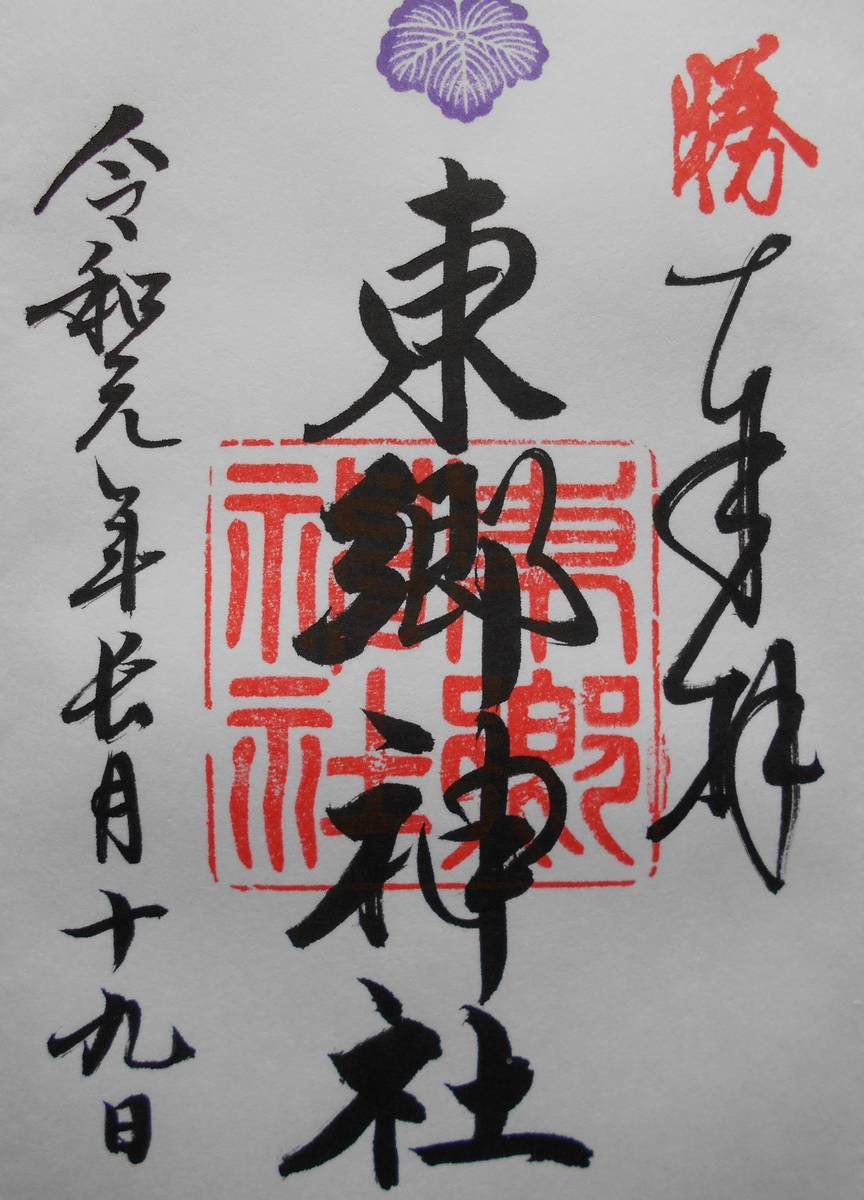 勝
奉拝
東郷神社
東郷神社
令和元年長月十九日